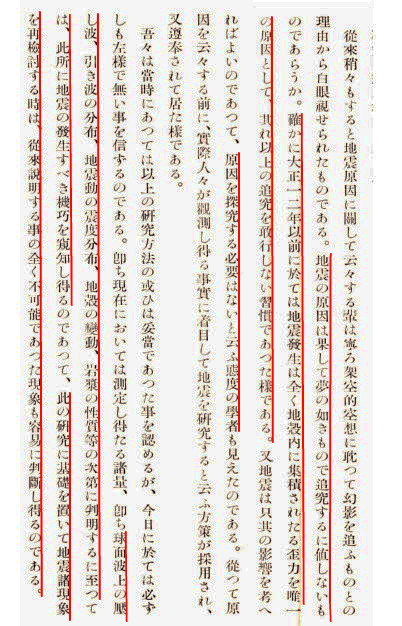 從來稍々もすると地震原因に關して云々する輩は寧ろ架空的空想に耽つて幻影を追ふものとの
理由から白眼視せられたものである。地震の原因は果して夢の如きもので追究するに値しないも
のであらうか。確かに大正一二年以前に於ては地震發生は全く地殼内に集積されたる歪力を唯一
の原因として、其れ以上の追究を敢行しない習慣であつた様である。又地震は只其の影響を考へ
ればよいのであつて、原因を探究する必要はないと云ふ態度の學者も見えたのである。從つて原
因を云々する前に、實際人々が觀測し得る事實に着目して地震を研究すると云ふ方策が採用され、
又遵奉されて居た様である。
吾々は當時にあつては以上の研究方法の或ひは妥當であつた事を認めるが、今日に於ては必ず
しも左様で無い事を信ずるのである。卽ち現在においては測定し得たる諸量、卽ち球面波上の壓
し波、引き波の分布、地震動の震度分布、地殼の變動、岩漿の性質等の次第に判明するに至つて
は、此所に地震の發生すべき機巧を窺知し得るのであつて、此の研究に基礎を置いて地震諸現象
を再檢討する時は、從來説明する事の全く不可能であつた現象も容易に判斷し得るのである。